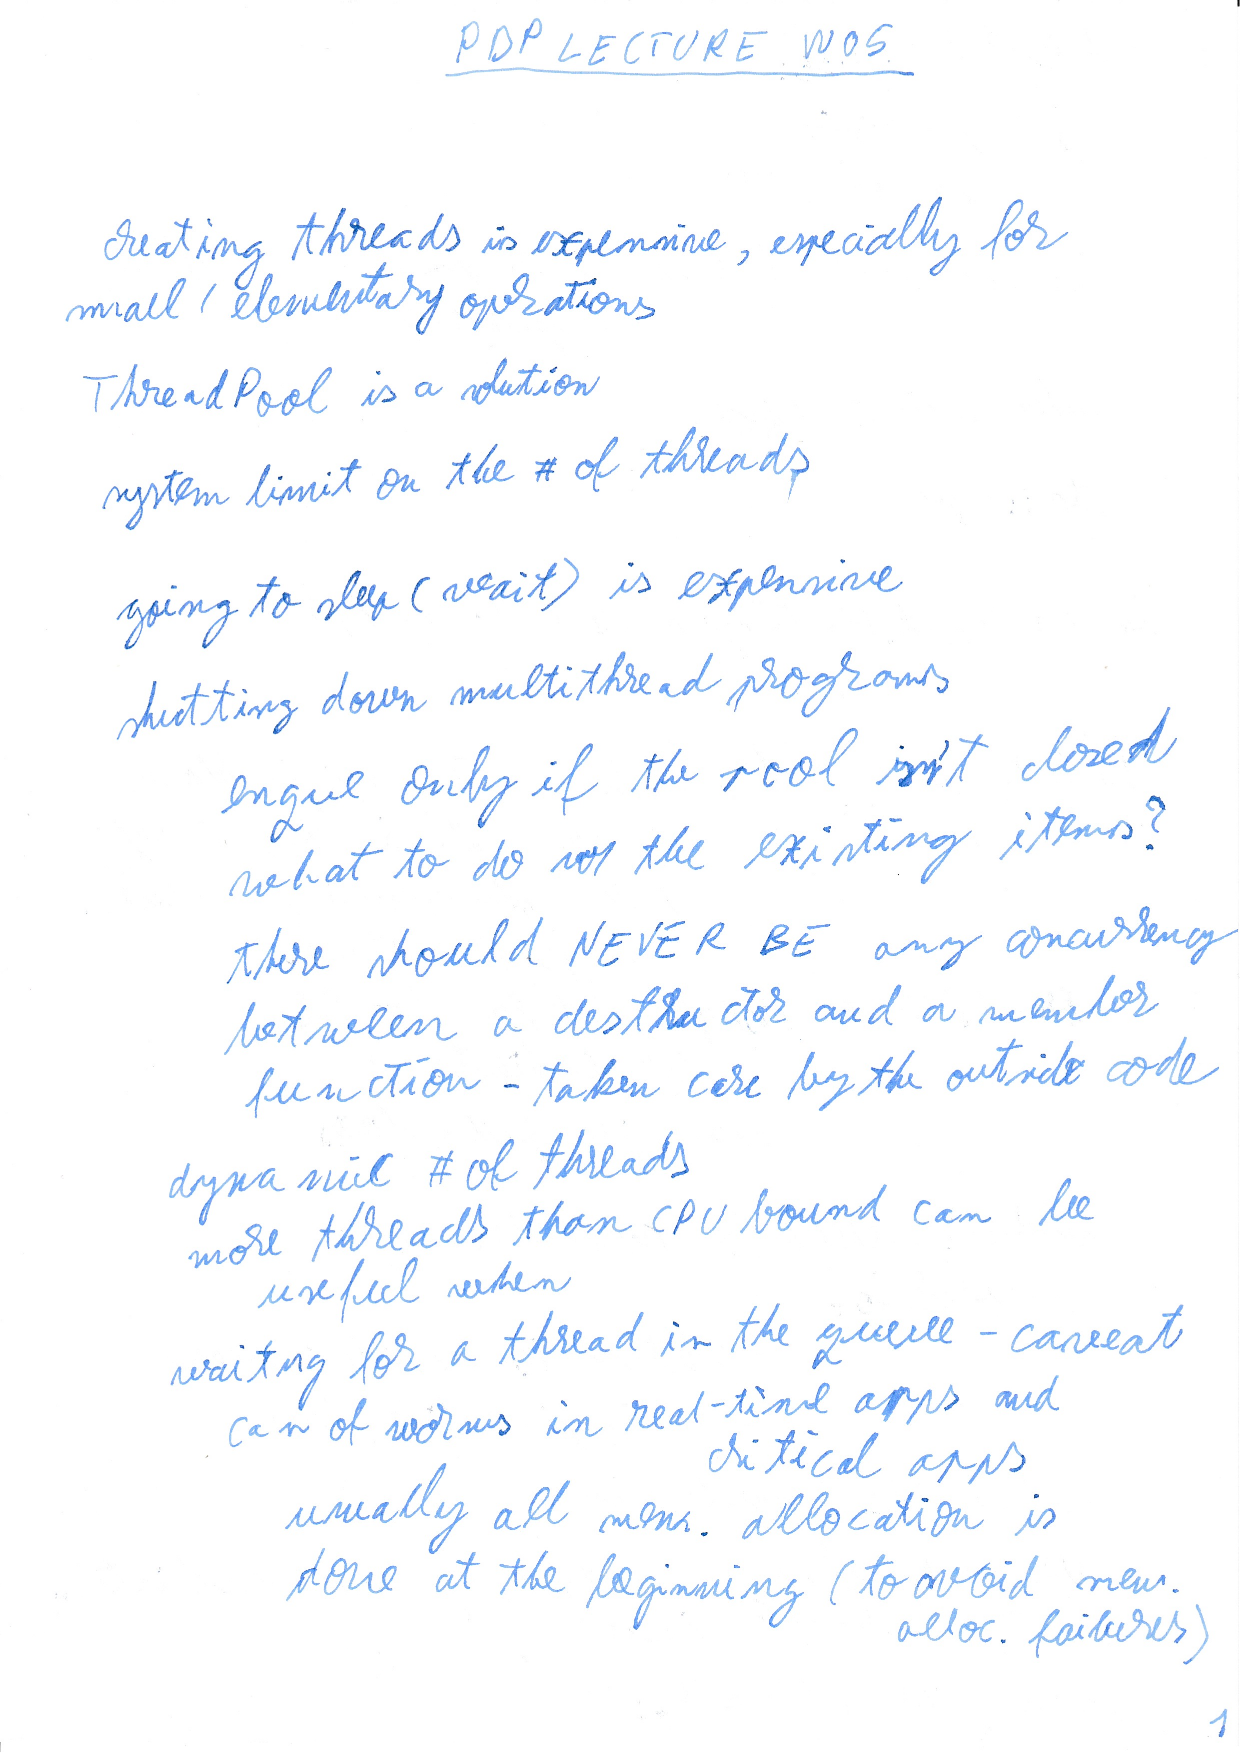 PDP LECTURE W05
creating threads is expensive, especially for
small / elementary operations
ThreadPool is a solution
system limit on the # of threads
going to sleep (wait) is expensive
shutting down multithread programs
enque only if the pool isn't closed
what to do w/ the existing items?
there should NEVER BE any concurrency
between a destructor and a member
function - taken care by the outside code
dynamic # of threads
more threads than CPU bound can be
useful when
waiting for a thread in the queue - caveat
can of worms in real-time apps and
critical apps
usually all mem. allocation is
done at the beginning (to avoid mem.
alloc. failures)
1